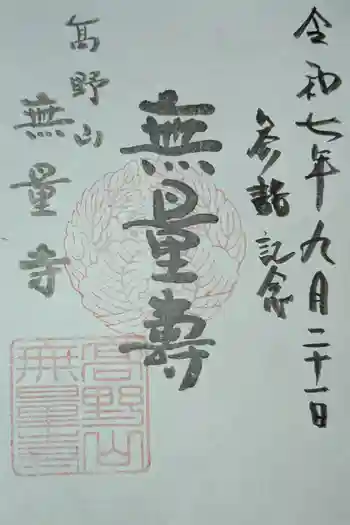 令和七年九月二十一日
参詣記念
無量壽
高野山
無量寺
高野山
無量寺